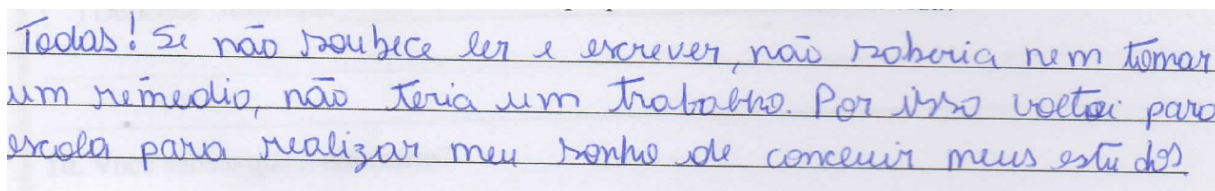 Todas! Se não soubece ler e escrever, não saberia nem tomar
um remedio, não teria um trabalho. Por isso voltei para
escola para realizar meu sonho de conceuir meus estudos